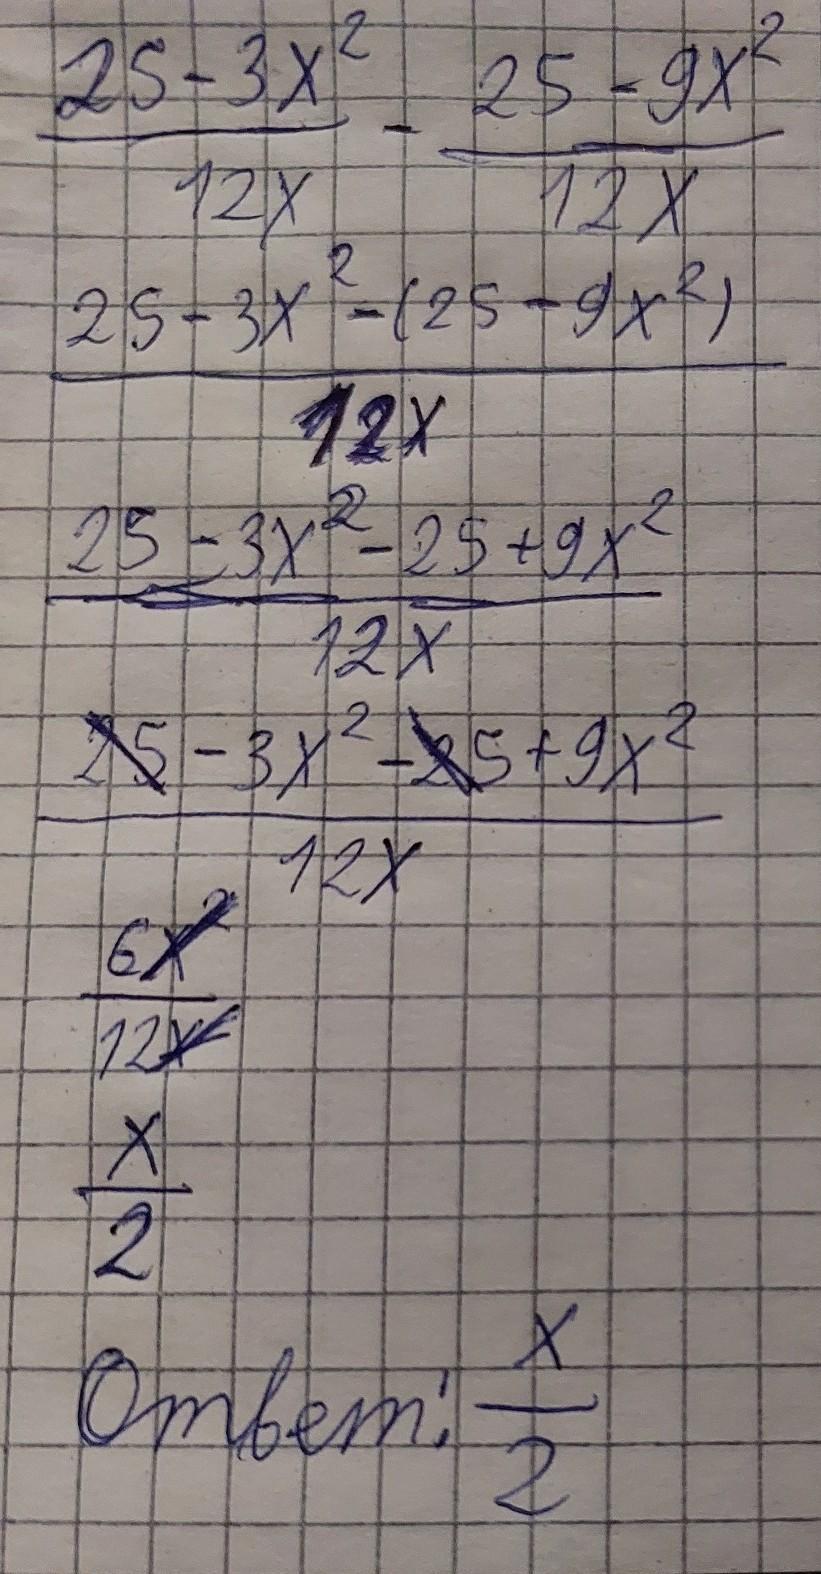 25-3x² / 12x - 25-9x² / 12x
25-3x²-(25-9x²) / 12x
25-3x²-25+9x² / 12x
25-3x²-25+9x² / 12x
6x² / 12x
x / 2
Ответ: x / 2